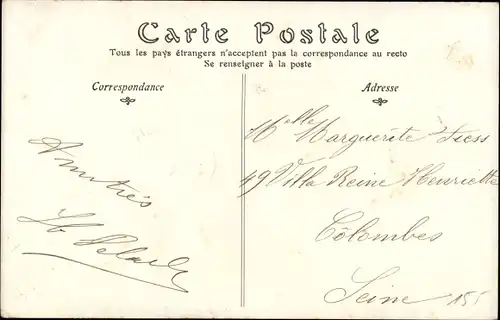 Carte Postale
Tous les pays étrangers n'acceptent pas la correspondance au recto
Se renseigner à la poste
Correspondance
Adresse
Amitiés
Melle Marguerite
49 Villa Reine Henriette
Côlombes
Seine
155